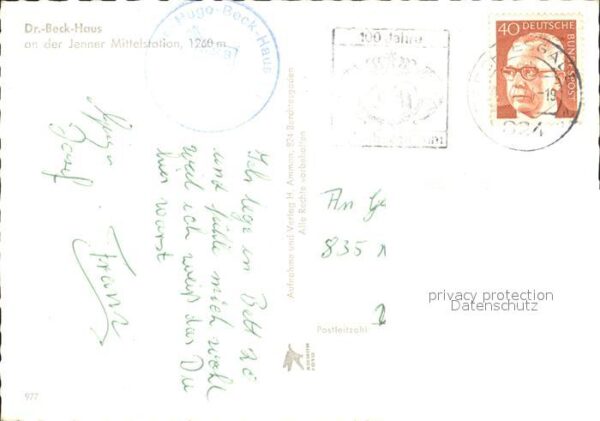 Dr.-Beck-Haus
an der Jenner Mittelstation, 1260 m
Hugo-Beck-Haus
100 Jahre
40 DEUTSCHE
BUNDESPOST
824
Ich liege in Bett 20
und fühle mich wohl
weil ich weiß das Du
hier warst
Josef
Franz
Aufnahme und Verlag H. Ammon, 824 Berchtesgaden
Alle Rechte vorbehalten
An
835
privacy protection
Datenschutz
Postleitzahl
977